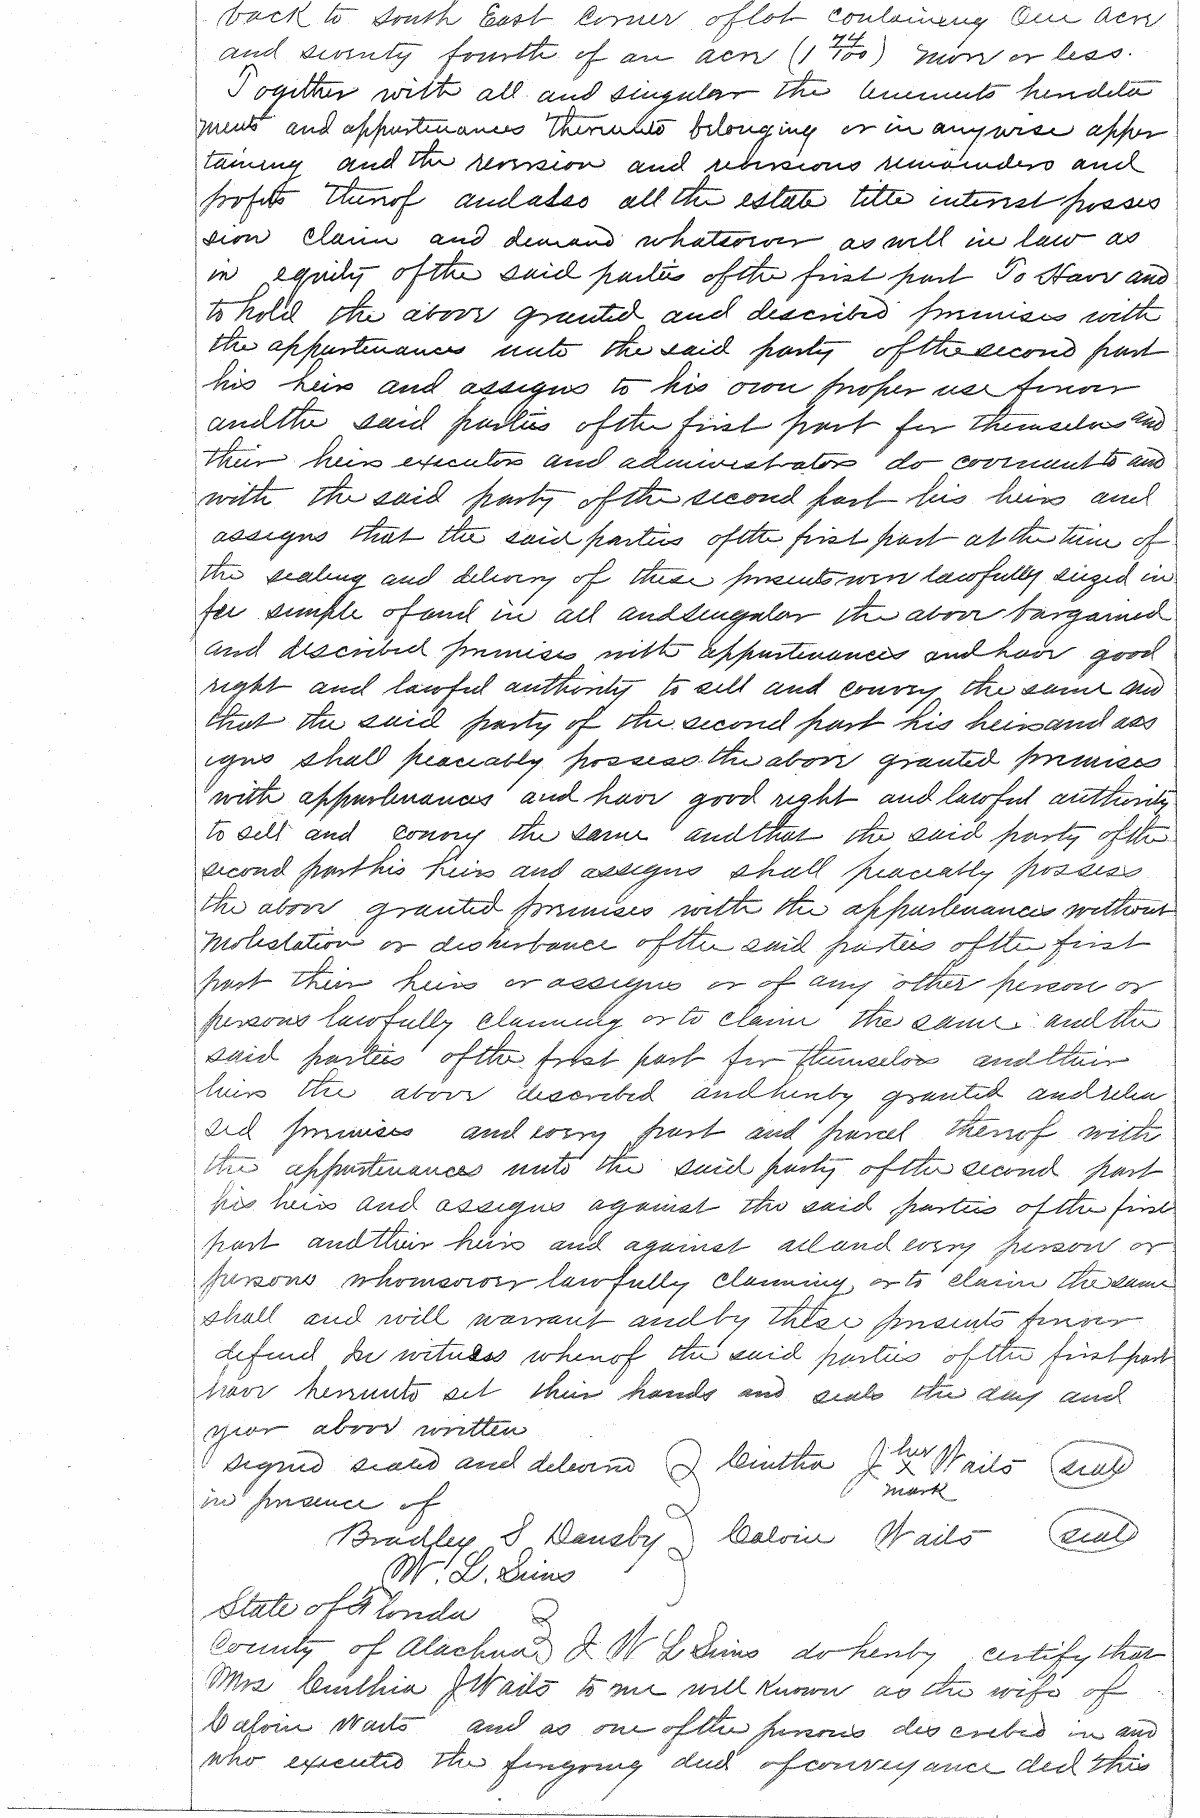 back to South East Corner of lot containing One acre
and seventy fourth of an acre (1 74/100) more or less.
Together with all and singular the tenements heredita
ments and appurtenances thereunto belonging or in anywise apper
taining and the reversion and reversions remainders and
profits thereof and also all the estate title interest posses
sion claim and demand whatsoever as well in law as
in equity of the said parties of the first part To Have and
to hold the above granted and described premises with
the appurtenances unto the said party of the second part
his heirs and assigns to his own proper use forever
and the said parties of the first part for themselves and
their heirs executors and administrators do covenant to and
with the said party of the second part his heirs and
assigns that the said parties of the first part at the time of
the sealing and delivery of these presents were lawfully siezed in
fee simple of and in all and singular the above bargained
and described premises with appurtenances and have good
right and lawful authority to sell and convey the same and
that the said party of the second part his heirs and ass
igns shall peaceably possess the above granted premises
with appurtenances and have good right and lawful authority
to sell and convey the same and that the said party of the
second part his heirs and assigns shall peaceably possess
the above granted premises with the appurtenances without
molestation or disturbance of the said parties of the first
part their heirs or assigns or of any other person or
persons lawfully claiming or to claim the same. and the
said parties of the first part for themselves and their
heirs the above described and hereby granted and relea
sed premises and every part and parcel thereof with
the appurtenances unto the said party of the second part
his heirs and assigns against the said parties of the first
part and their heirs and against all and every person or
persons whomsoever lawfully claiming or to claim the same
shall and will warrant and by these presents forever
defend In witness whereof the said parties of the first part
have hereunto set their hands and seals the day and
year above written
Signed sealed and delivered Cintha J her x mark Waits seal
in presence of
Bradley S Dansby Calvin Waits seal
W. L. Sims
State of Florida
County of Alachua I W L Sims do hereby certify that
Mrs Cinthia J Waits to me well known as the wife of
Calvin Waits and as one of the persons described in and
who executed the foregoing deed of conveyance did this